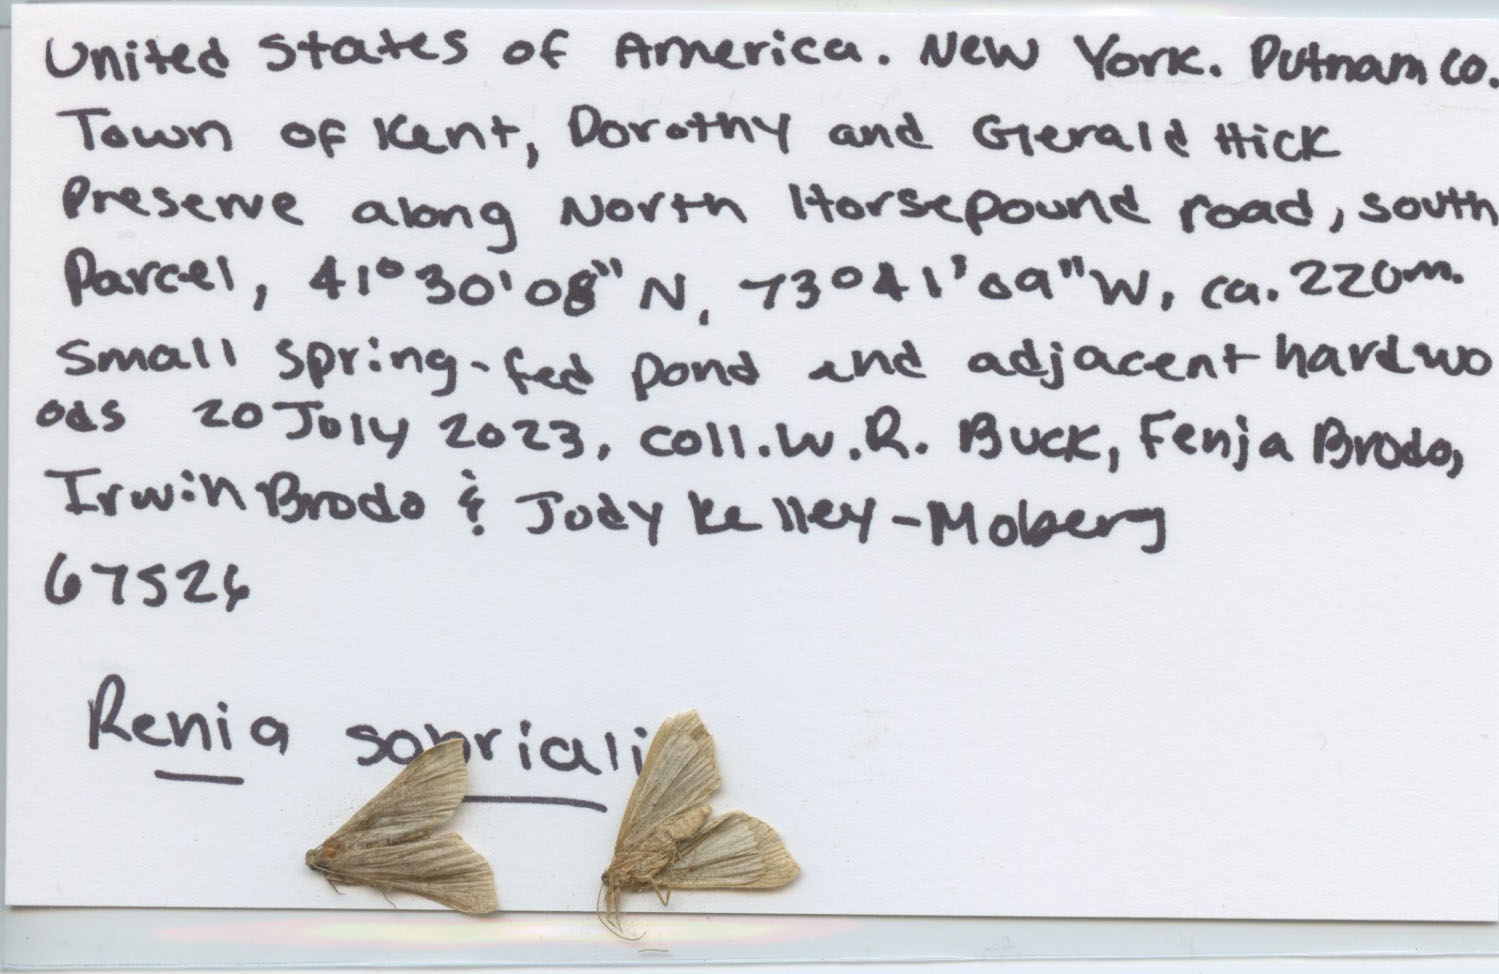 United States of America. New York. Putnam Co.
Town of Kent, Dorothy and Gerald Hick
Preserve along North Horsepound road, south
Parcel, 41°30'08"N, 73°41'09"W, ca. 220m.
Small spring-fed pond and adjacent hardwo
ods 20 July 2023, coll. W.R. Buck, Fenja Brodo,
Irwin Brodo & Jody Kelley-Moberg
67526
Renia sobriali